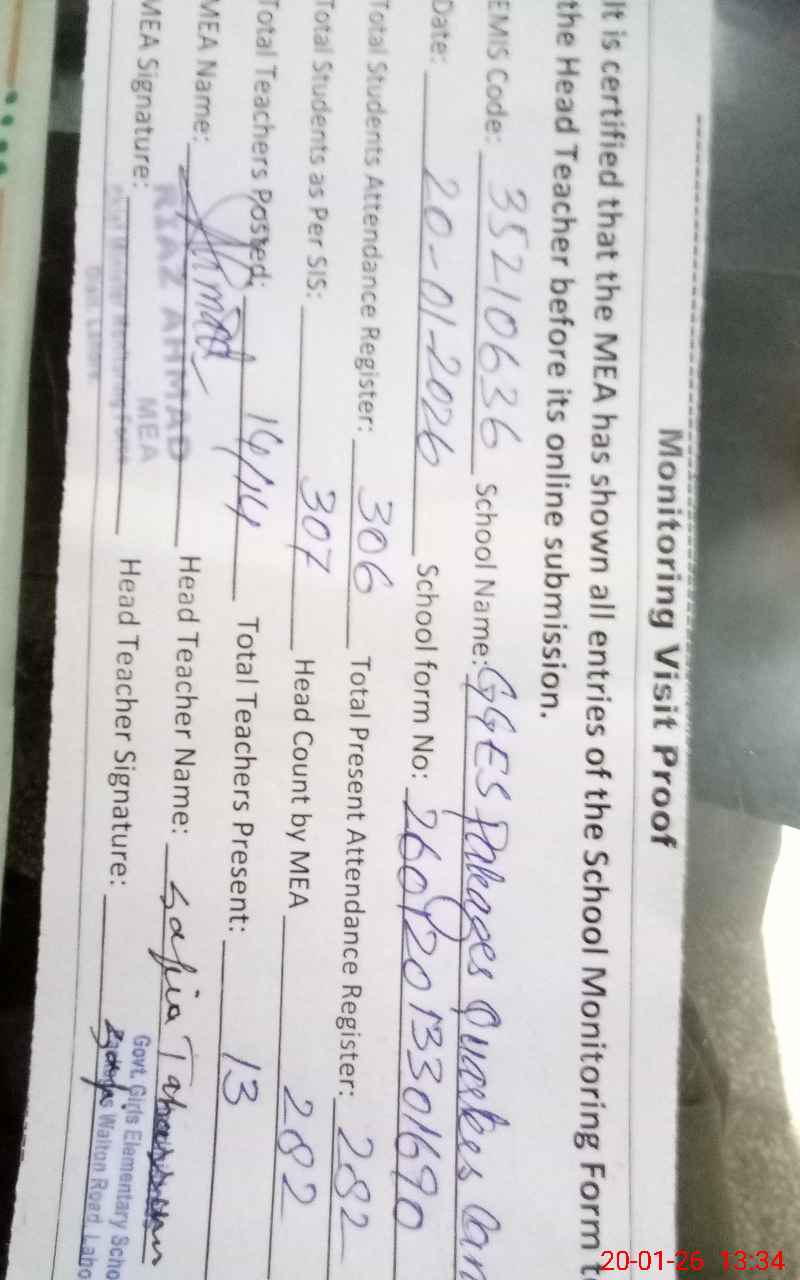 Monitoring Visit Proof
It is certified that the MEA has shown all entries of the School Monitoring Form t
the Head Teacher before its online submission.
EMIS Code: 35210636 School Name: GGES Pakages Quarters Can
Date: 20-01-2026 School form No: 26012013301690
Total Students Attendance Register: 306 Total Present Attendance Register: 282
Total Students as Per SIS: 307 Head Count by MEA 282
Total Teachers Posted: 14/14 Total Teachers Present: 13
MEA Name: Ahmad Head Teacher Name: Safia
MEA Signature: Head Teacher Signature:
RIAZ AHMAD
MEA
Govt. Girls Elementary Scho
Walton Road, Laho
20-01-26 13:34